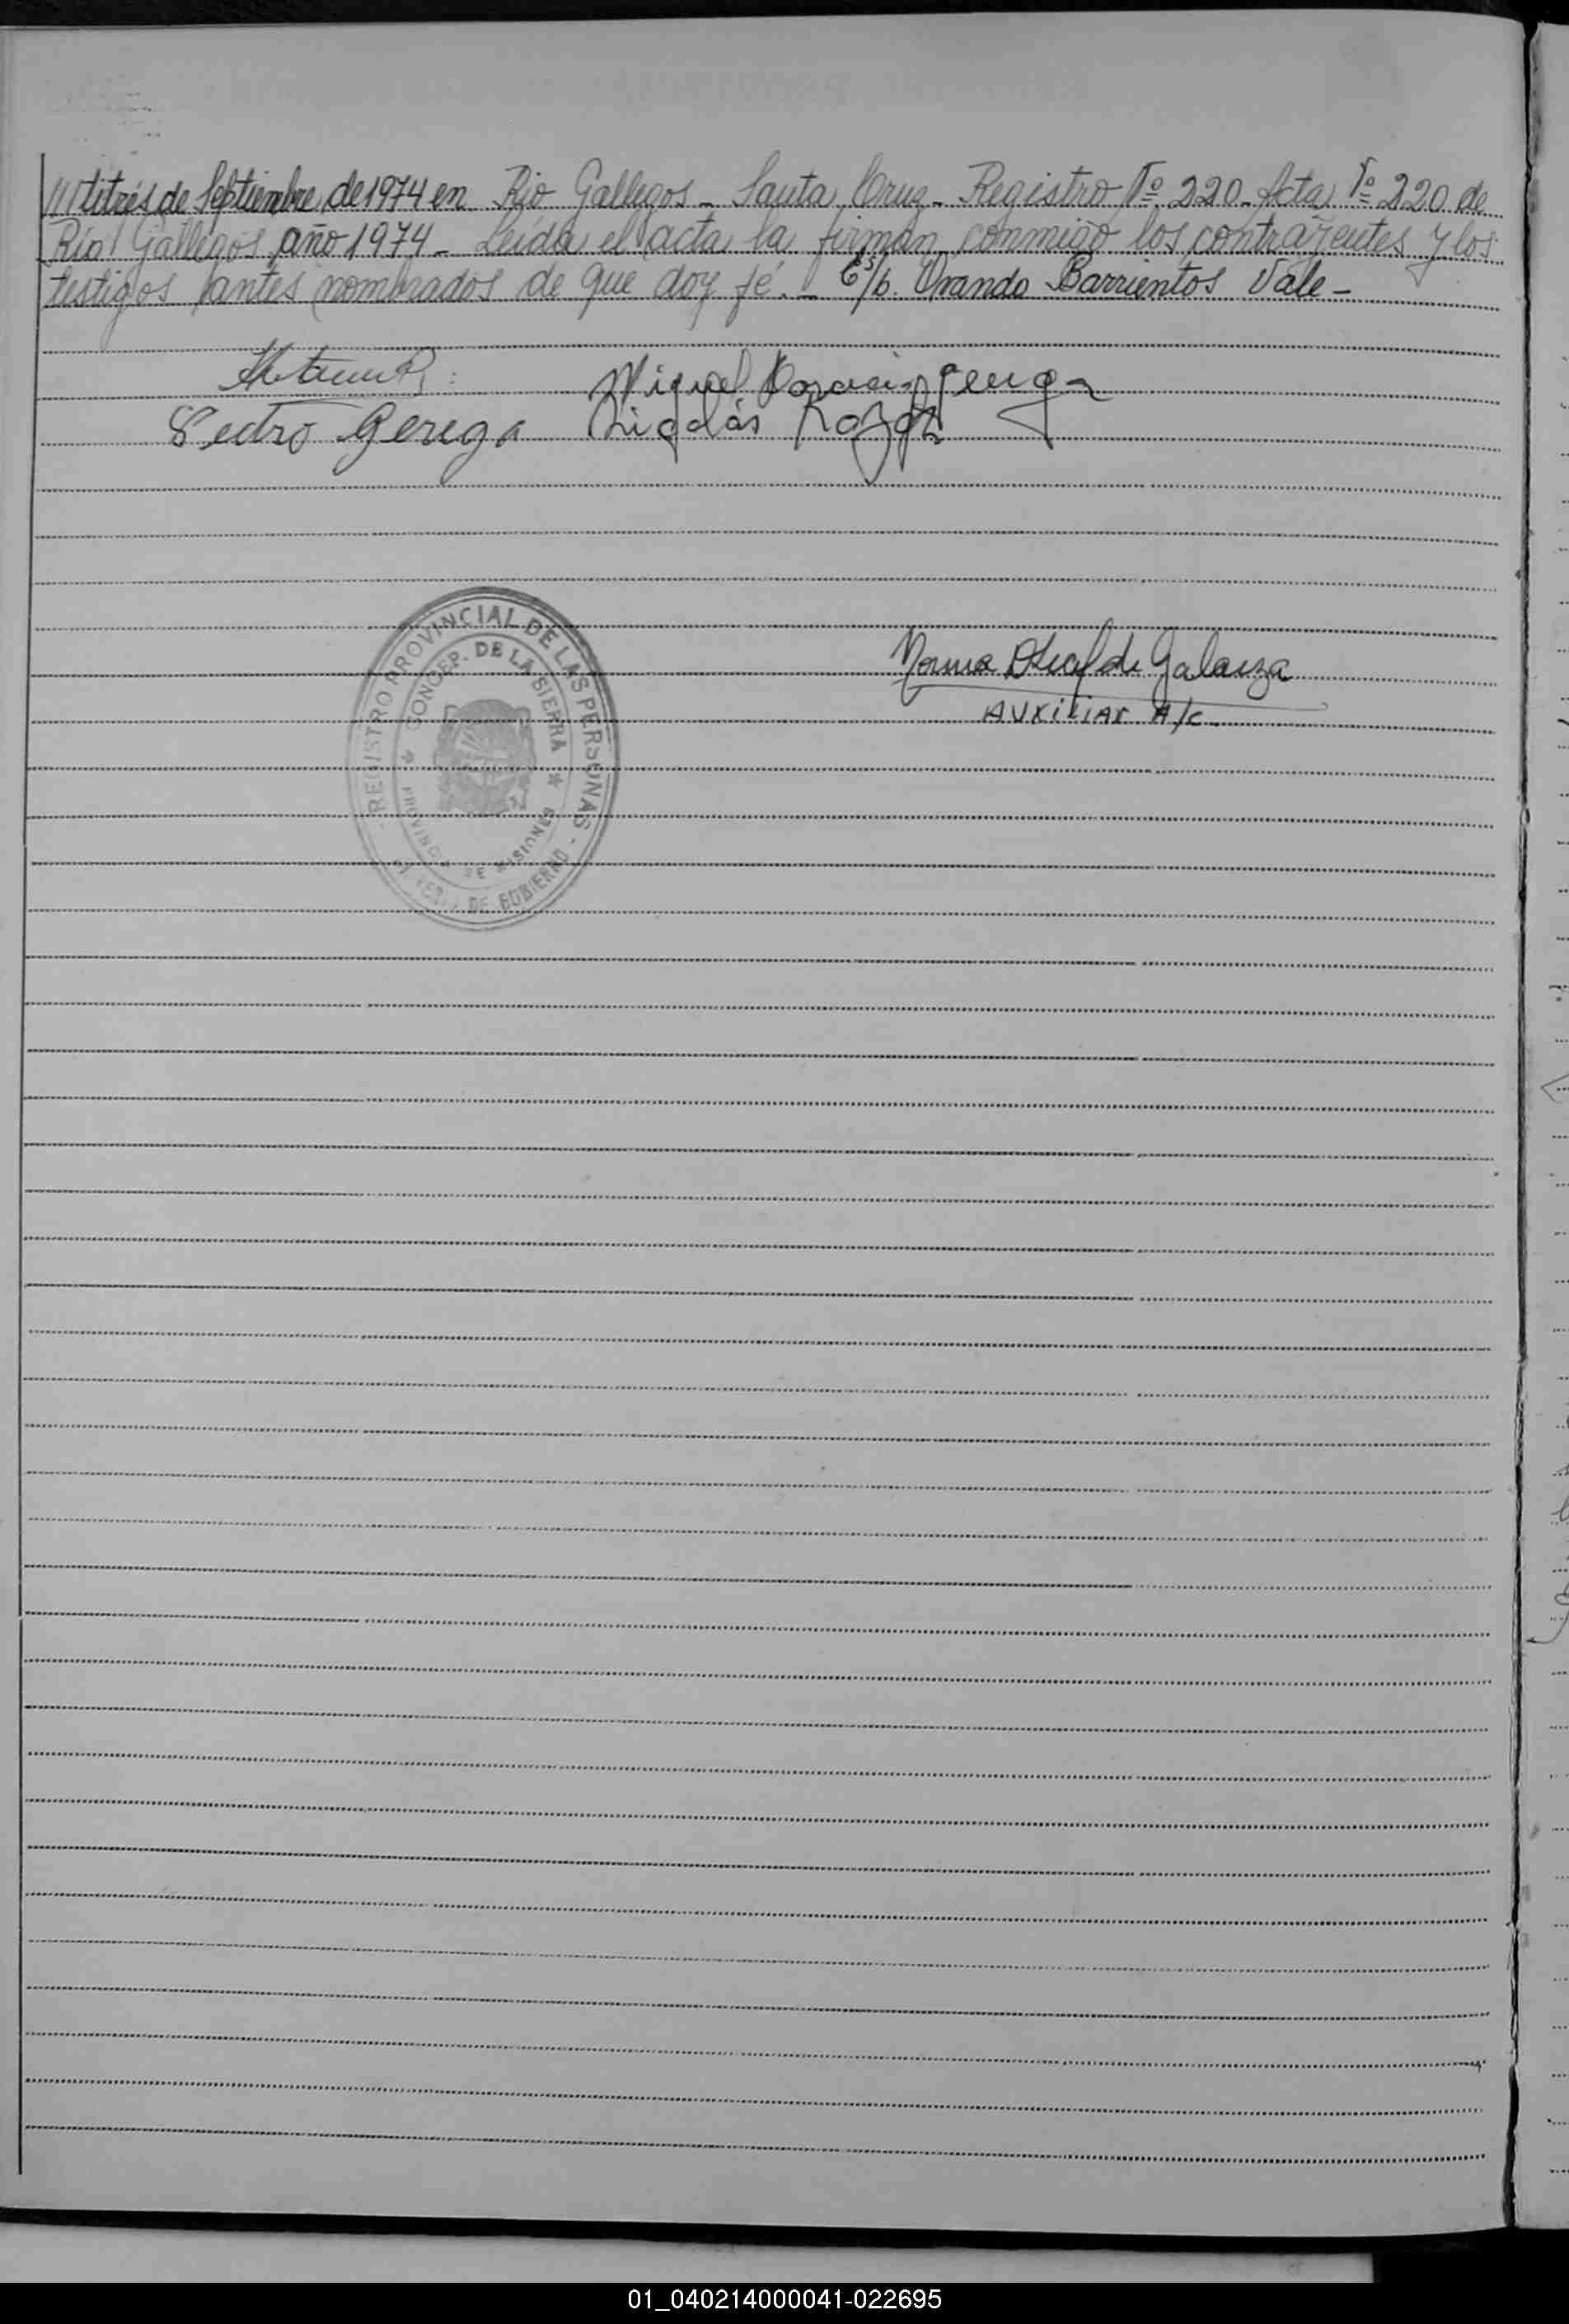 ///titrés de Septiembre de 1974 en Río Gallegos - Santa Cruz - Registro Nº 220 - Acta Nº 220 de
Río Gallegos año 1974 - Leída el acta la firman conmigo los contrayentes y los
testigos antes nombrados de que doy fé. - Es/b. Ovando Barrientos Vale -
Miguel Gerega
Pedro Gerega Nicolás
REGISTRO PROVINCIAL DE LAS PERSONAS -
DE GOBIERNO
CONCEP. DE LA SIERRA
PROVINCIA DE MISIONES
Norma de Galarza
AUXILIAR A/C
01_040214000041-022695